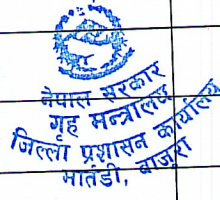 नेपाल सरकार
गृह मन्त्रालय
जिल्ला प्रशासन कार्यालय
मार्तडी, बाजुरा